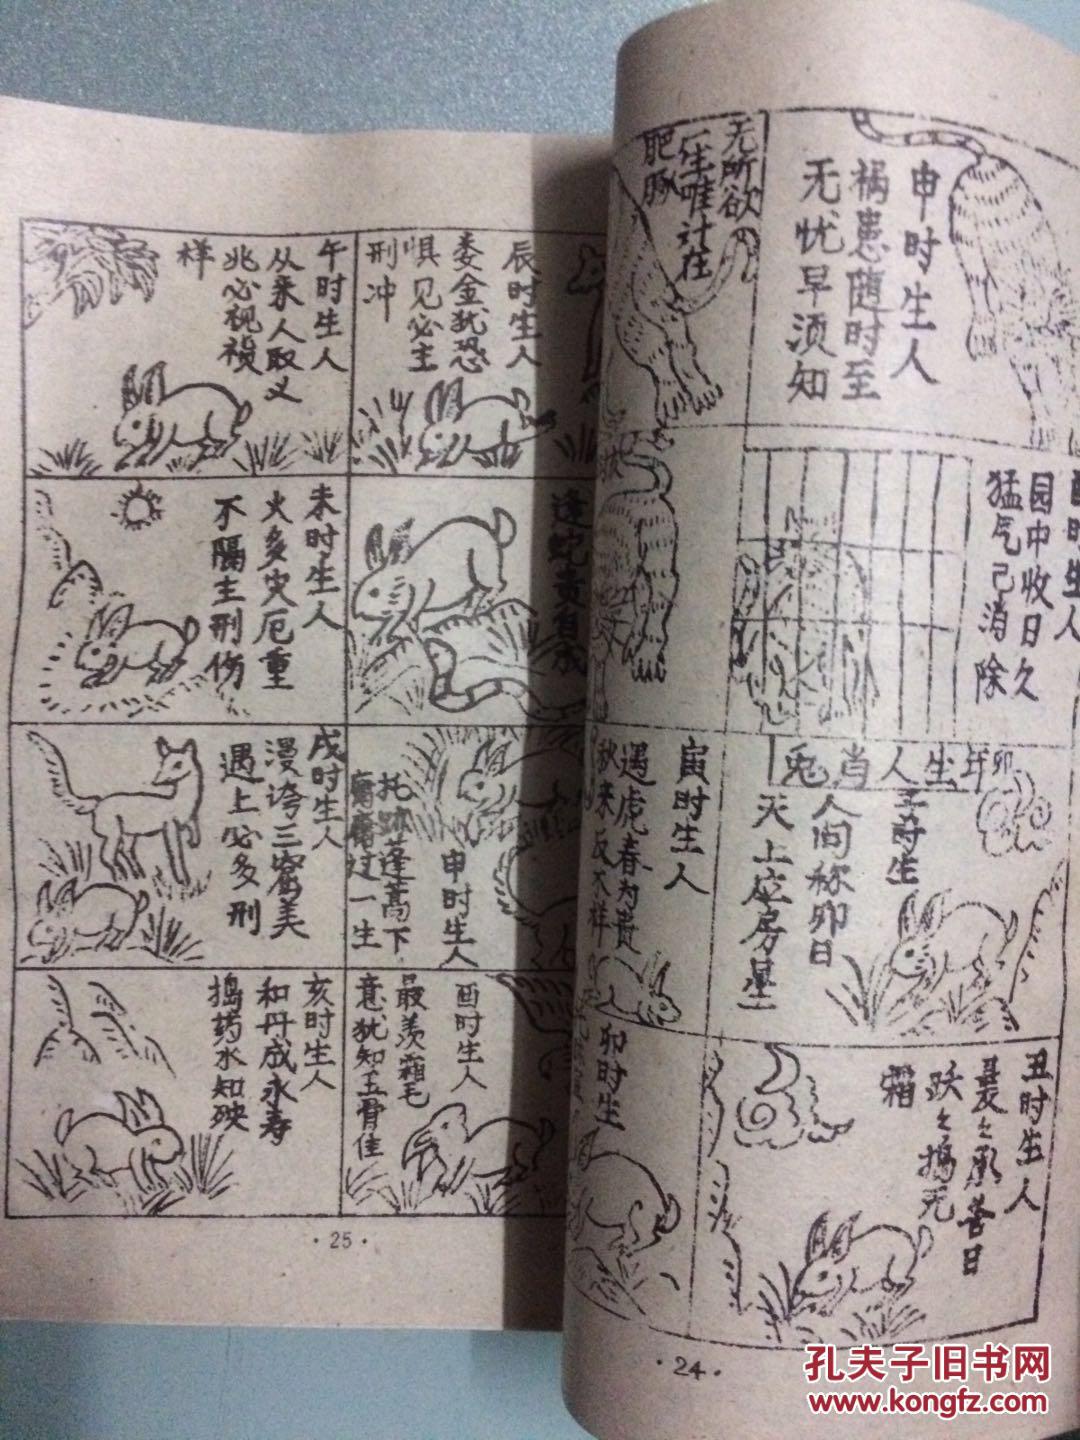 申时生人
祸患随时至
无忧早须知
无所欲
一生唯计在
肥豚
酉时生人
园中收日久
猛气已消除
卯年生人肖兔
子时生
人间称卯日
天上应房星
寅时生人
遇虎春为贵
秋来反不祥
丑时生人
晏之承昔日
跃之捣无
霜
卯时生
·24·
辰时生人
娄金犹恐
惧见必主
刑冲
午时生人
从来人取义
兆必视祯
样
逢蛇贵有成
未时生人
火多灾厄重
不隔主刑伤
申时生人
托跡蓬蒿下
庸庸过一生
戌时生人
漫夸三窟美
遇上必多刑
酉时生人
最羡霜毛
意犹知玉骨佳
亥时生人
和丹成永寿
捣药永知殃
·25·
孔夫子旧书网
www.kongfz.com